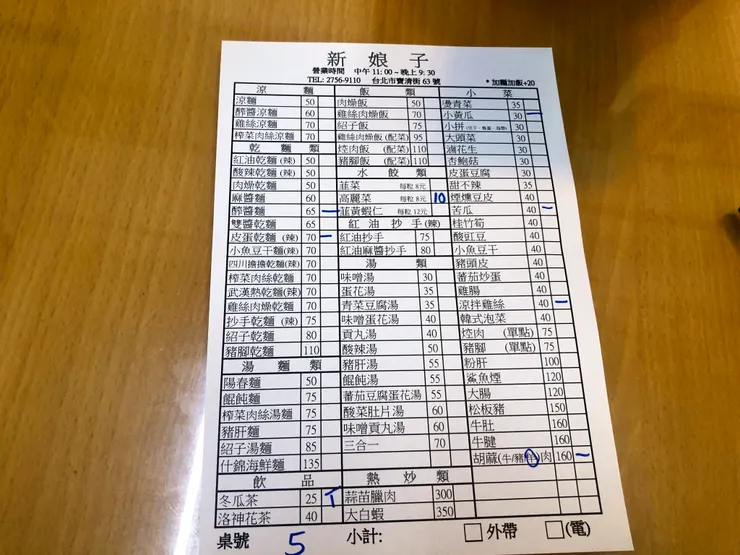 新娘子
營業時間 中午 11:00~晚上 9:30
TEL: 2756-9110 台北市寶清街 63 號
*加麵加飯+20
涼麵
涼麵 50
醉醬涼麵 60
雞絲涼麵 70
榨菜肉絲涼麵 70
乾麵類
紅油乾麵(辣) 50
酸辣乾麵(辣) 50
肉燥乾麵 50
麻醬麵 60
醉醬麵 65 一
雙醬乾麵 65
皮蛋乾麵(辣) 70 一
小魚豆干麵(辣) 70
四川擔擔乾麵(辣) 70
榨菜肉絲乾麵 70
武漢熱乾麵(辣) 70
雞絲肉燥乾麵 70
抄手乾麵(辣) 75
紹子乾麵 80
豬腳乾麵 110
湯麵類
陽春麵 50
餛飩麵 75
榨菜肉絲湯麵 75
豬肝麵 75
紹子湯麵 85
什錦海鮮麵 135
飲品
冬瓜茶 25
洛神花茶 40
飯類
肉燥飯 50
雞絲肉燥飯 70
紹子飯 75
雞絲肉燥飯(配菜) 95
焢肉飯(配菜) 110
豬腳飯(配菜) 110
水餃類
韮菜 每粒8元
高麗菜 每粒8元 10
韮黃蝦仁 每粒12元
紅油抄手(辣)
紅油抄手 75
紅油麻醬抄手 80
湯類
味噌湯 30
蛋花湯 35
青菜豆腐湯 35
味噌蛋花湯 40
貢丸湯 40
酸辣湯 50
豬肝湯 55
餛飩湯 55
蕃茄豆腐蛋花湯 55
酸菜肚片湯 60
味噌貢丸湯 60
三合一 70
熱炒類
蒜苗臘肉 300
大白蝦 350
小菜
燙青菜 35
小黃瓜 30 一
小拼 30
大頭菜 30
滷花生 30
杏鮑菇 30
皮蛋豆腐 30
甜不辣 35
煙燻豆皮 40
苦瓜 40 一
桂竹筍 40
酸豇豆 40
小魚豆干 40
豬頭皮 40
蕃茄炒蛋 40
雞腸 40
涼拌雞絲 40 一
韓式泡菜 40
焢肉(單點) 75
豬腳(單點) 75
粉肝 100
鯊魚煙 120
大腸 120
松板豬 150
牛肚 160
牛腱 160
胡蔴(牛/豬)肉 160 一
桌號 5 小計: □外帶 □(電)